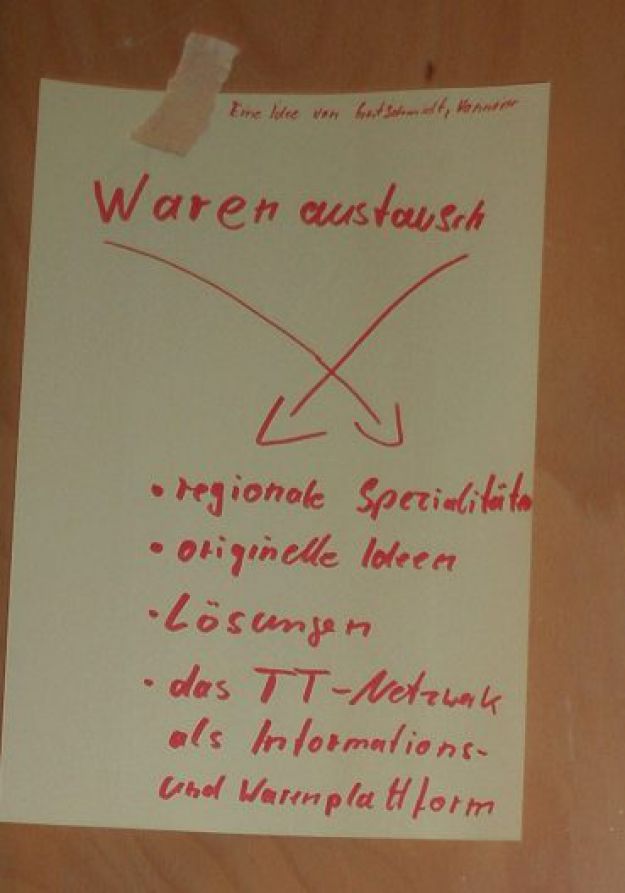 Eine Idee von Gert Schmidt, Hannover
Warenaustausch
• regionale Spezialitäten
• originelle Ideen
• Lösungen
• das TT-Netzwerk
als Informations-
und Warenplattform